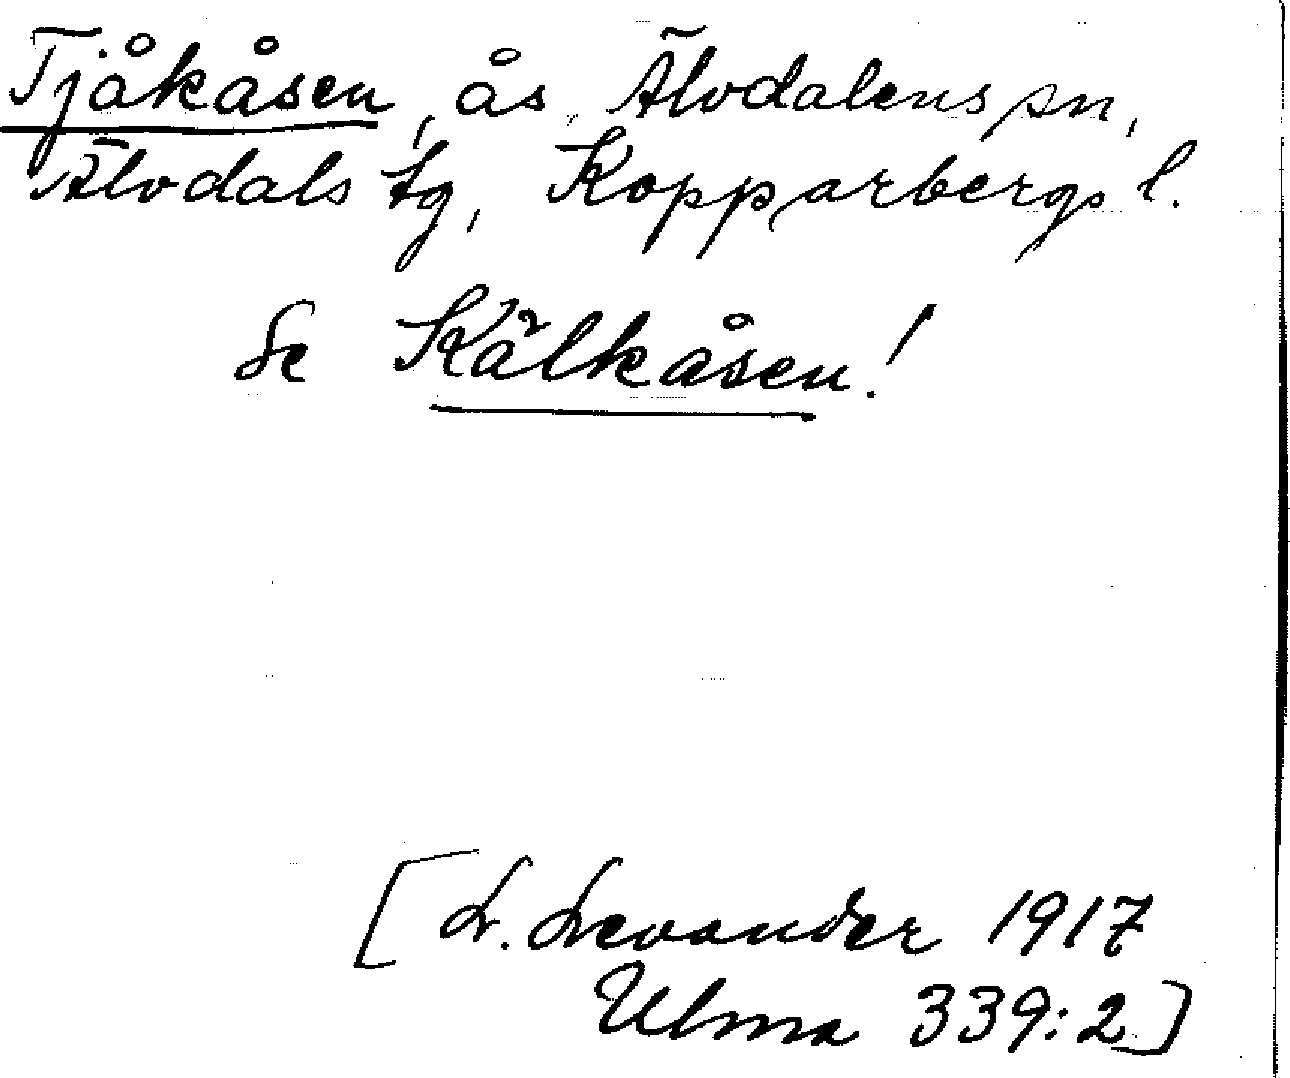 Tjåkåsen, ås, Älvdalens sn,
Älvdals tg, Kopparbergs l.
Se Kälkåsen!
[L. Levander 1917
Ulma 339:2]